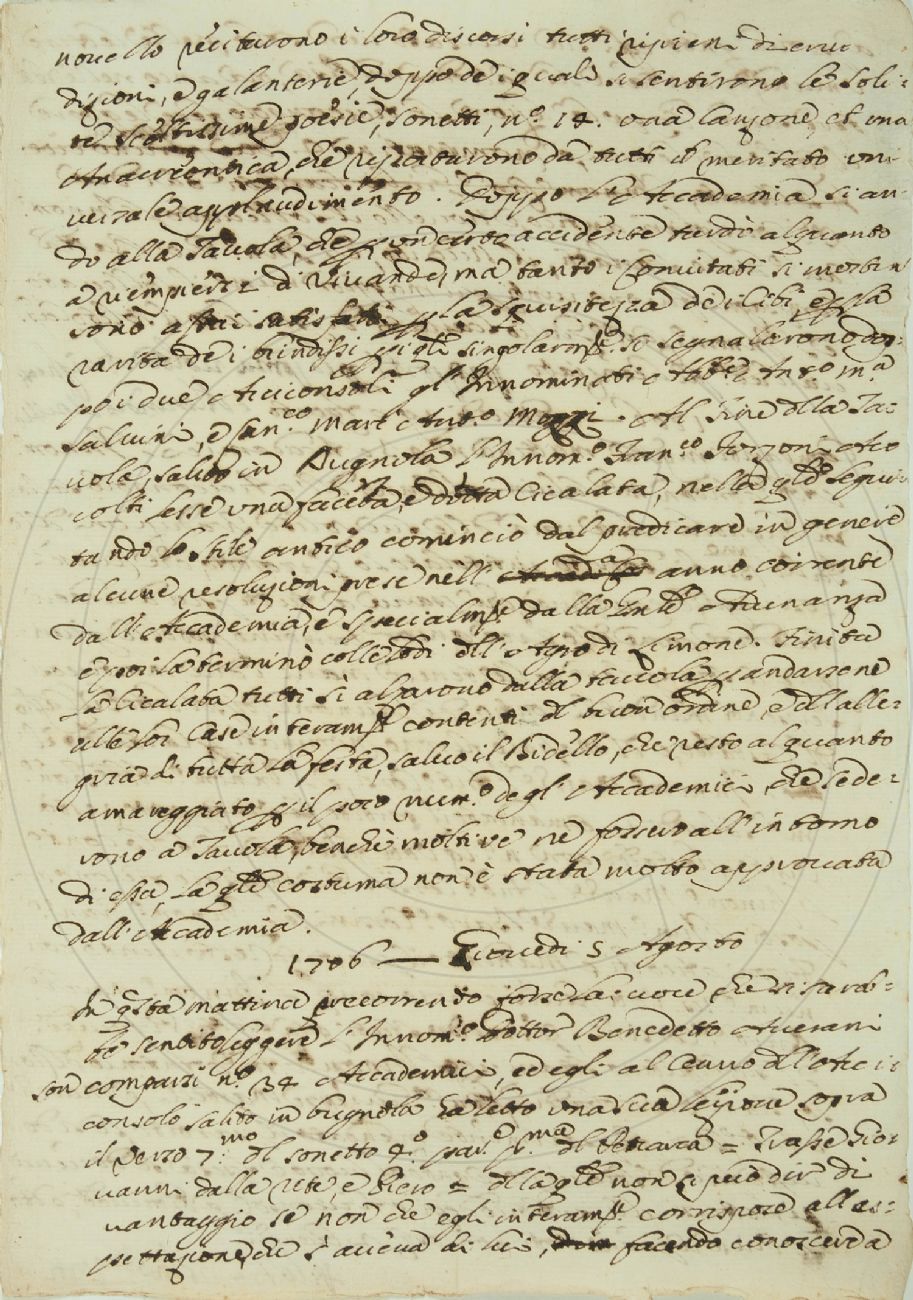 novello recitarono i loro discorsi tutti ripieni di eru
dizioni, e galanterie, doppo de i quali si sentirono le soli-
te sceltissime poesie, sonetti, n.º 14. una canzone, et una
Anacreontica, che riportarono da tutti il meritato uni
versale applaudimento. Doppo l'Accademia si an-
dò alla Tavola, che per un certo accidente tardò alquanto
a riempiersi di vivande, ma tanto i Convitati si
rono assai satisfatti per la squisitezza de i cibi, e per la
rarità de i brindisi, singolarmte. si segnalarono dop-
po i due Arciconsoli gl'Innominati Abbe. Anto. Ma.
Salvini, e Canco. Mart. Anto. Mozzi. Al fine della Ta-
vola, salito in Bugnola l'Innomo. Franco. Forzoni Acc
colti lesse una faceta, e dotta Cicalata, nella qle. segui-
tando lo stile antico cominciò dal predicare in genere
alcune resoluzioni prese nell' anno corrente
dall'Accademia, e specialmte. dalla Adunanza
e poi la terminò colle lodi dll'Agro di Limone. Finita
la Cicalata tutti si alzarono dalla tavola per andarsene
alle lor Case interamte. contenti dl buon ordine, e dll'alle-
gria di tutta la festa, salvo il Bidello, che restò alquanto
amareggiato per il poco num.º degl'Accademici, che sede-
rono a Tavola, benchè molti ve ne fossero all'intorno
di essa, la qle. costuma non è stata molto approvata
dall'Accademia.
1706 — Giovedi 5 Agosto
In qsta mattina precorrendo forse la voce che si sareb-
be sentito leggere l'Innomo. Dottor Benedetto Averani
son comparsi n.º 34 Accademici, ed egli al Cenno dll'Arci
consolo salito in bugnola ha letto una sua lezione sopra
il verso 7.mo dl sonetto 4.º par.e pr.ma dl Petrarca = Trasse Gio-
vanni dalla rete, e Piero = dlla qle. non si può dir di
vantaggio se non che egli interamte. corrispose all'as-
pettazione, che s'aveva di lui, facendo conoscer la